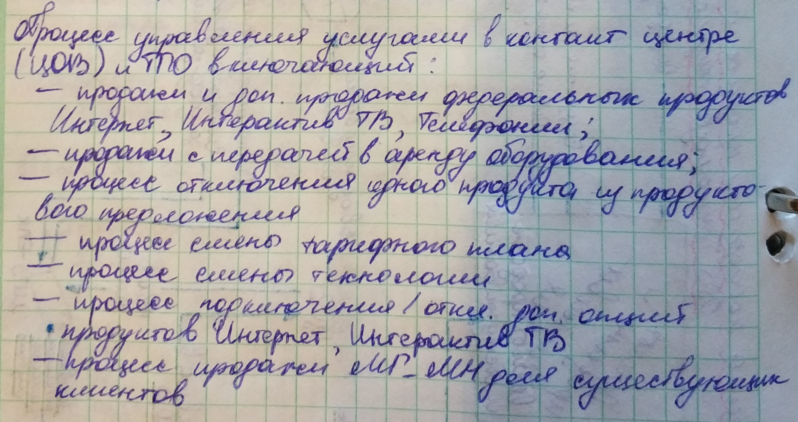 Процесс управления услугами в контакт центре
(ЦОВ) и ТПО включающий:
— продажи и доп. продажи федеральных продуктов
Интернет, Интерактив ТВ, Телефонии;
— продажи с передачей в аренду оборудования;
— процесс отключения одного продукта из продукто-
вого предложения
— процесс смены тарифного плана
— процесс смены технологии
— процесс подключения/откл. доп. опций
продуктов Интернет, Интерактив ТВ
— процесс продажи МГ-МН для существующих
клиентов